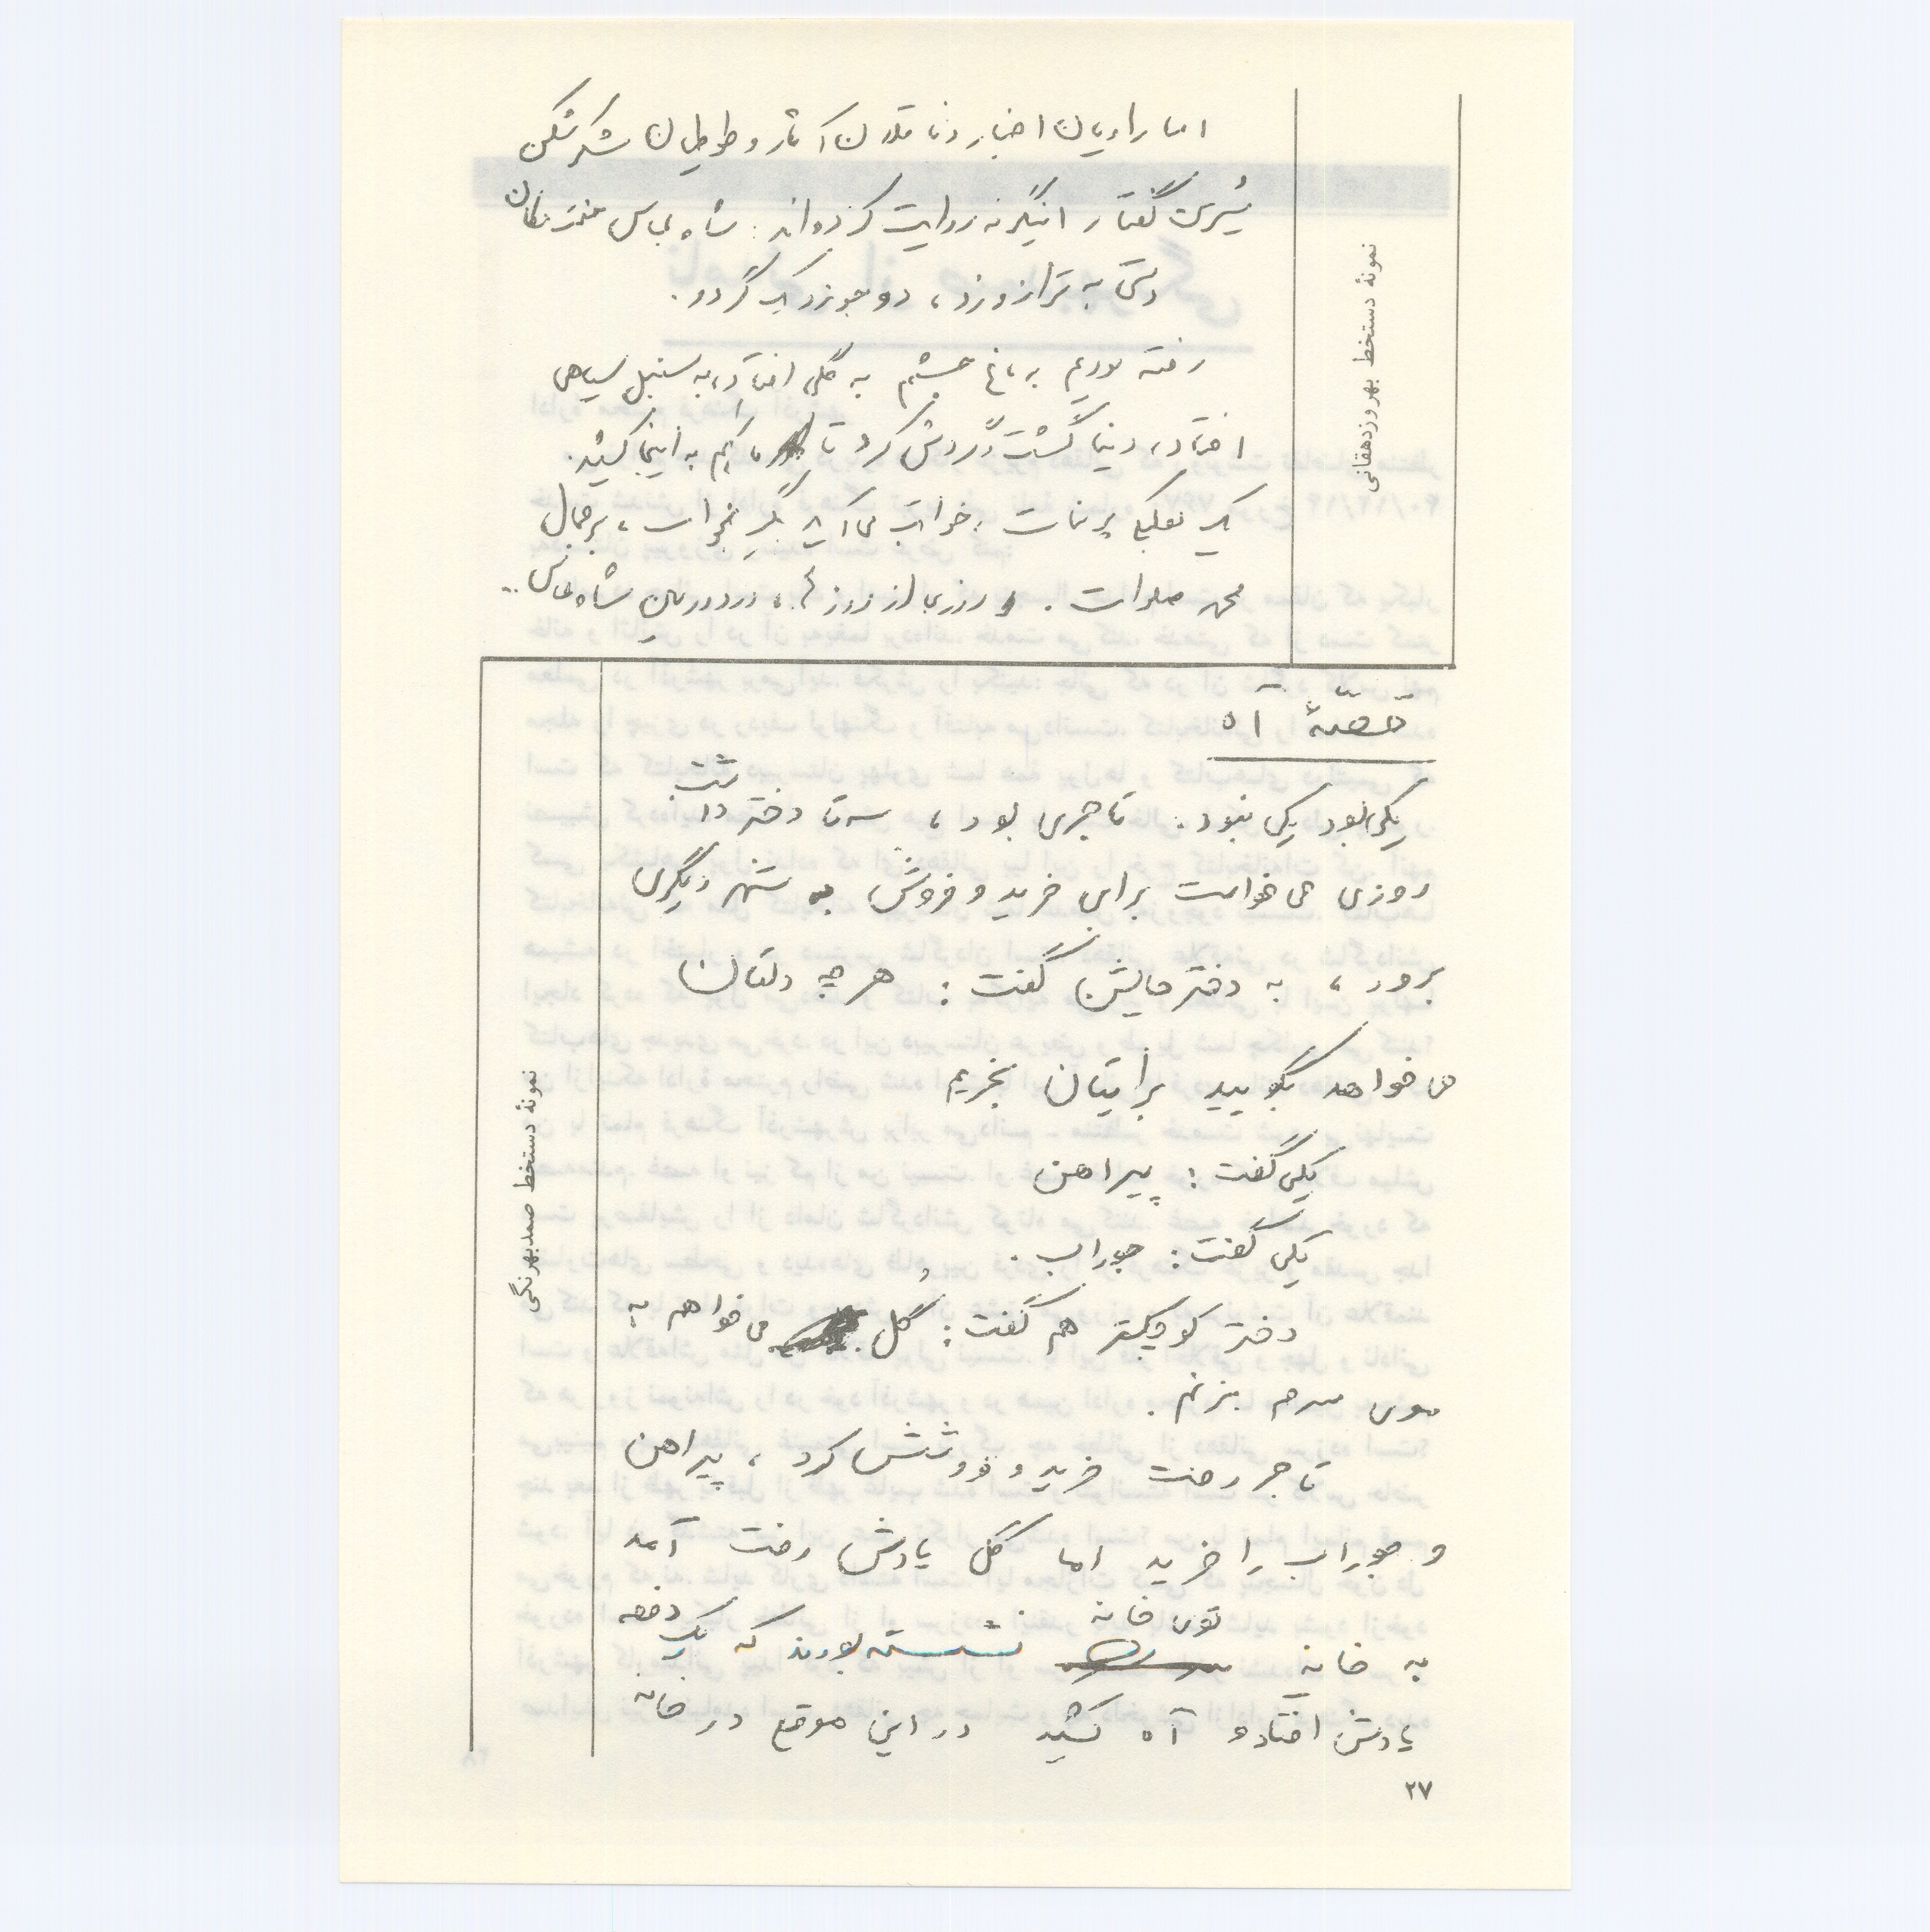 اما راویان اخبار و ناقلان آثار و طوطیان شکرشکن
شیرین گفتار اینگونه روایت کرده‌اند: شاه عباس جنت مکان
دستی به ترازو زد، دو جو زد یک گردو.
رفته بودیم به باغ چشمم به گلی افتاد، به سنبل سیاهی
افتاد، دنیا گشت و گردش کرد تا کارمان هم به اینجا کشید.
یک نعلبکی پر نبات، خوابت می‌آید بگیر بخواب، بر جمال
محمد صلوات. روزی از روزها، در دورهٔ شاه عباس..
نمونهٔ دستخط بهروز دهقانی
قصّهٔ آه
یکی بود یکی نبود. تاجری بود، سه تا دختر داشت
روزی می‌خواست برای خرید و فروش به شهر دیگری
برود، به دخترهایش گفت: هر چه دلتان
می‌خواهد بگویید برایتان بخریم
یکی گفت: پیراهن
یکی گفت: جوراب.
دختر کوچکتر هم گفت: گُل می‌خواهم به
موی سرم بزنم.
تاجر رفت خرید و فروشش کرد، پیراهن
و جوراب را خرید اما گل یادش رفت آمد
به خانه توی خانه نشسته بودند که یک دفعه
یادش افتاد و آه کشید در این موقع در خانه
نمونهٔ دستخط صمد بهرنگی
۲۷